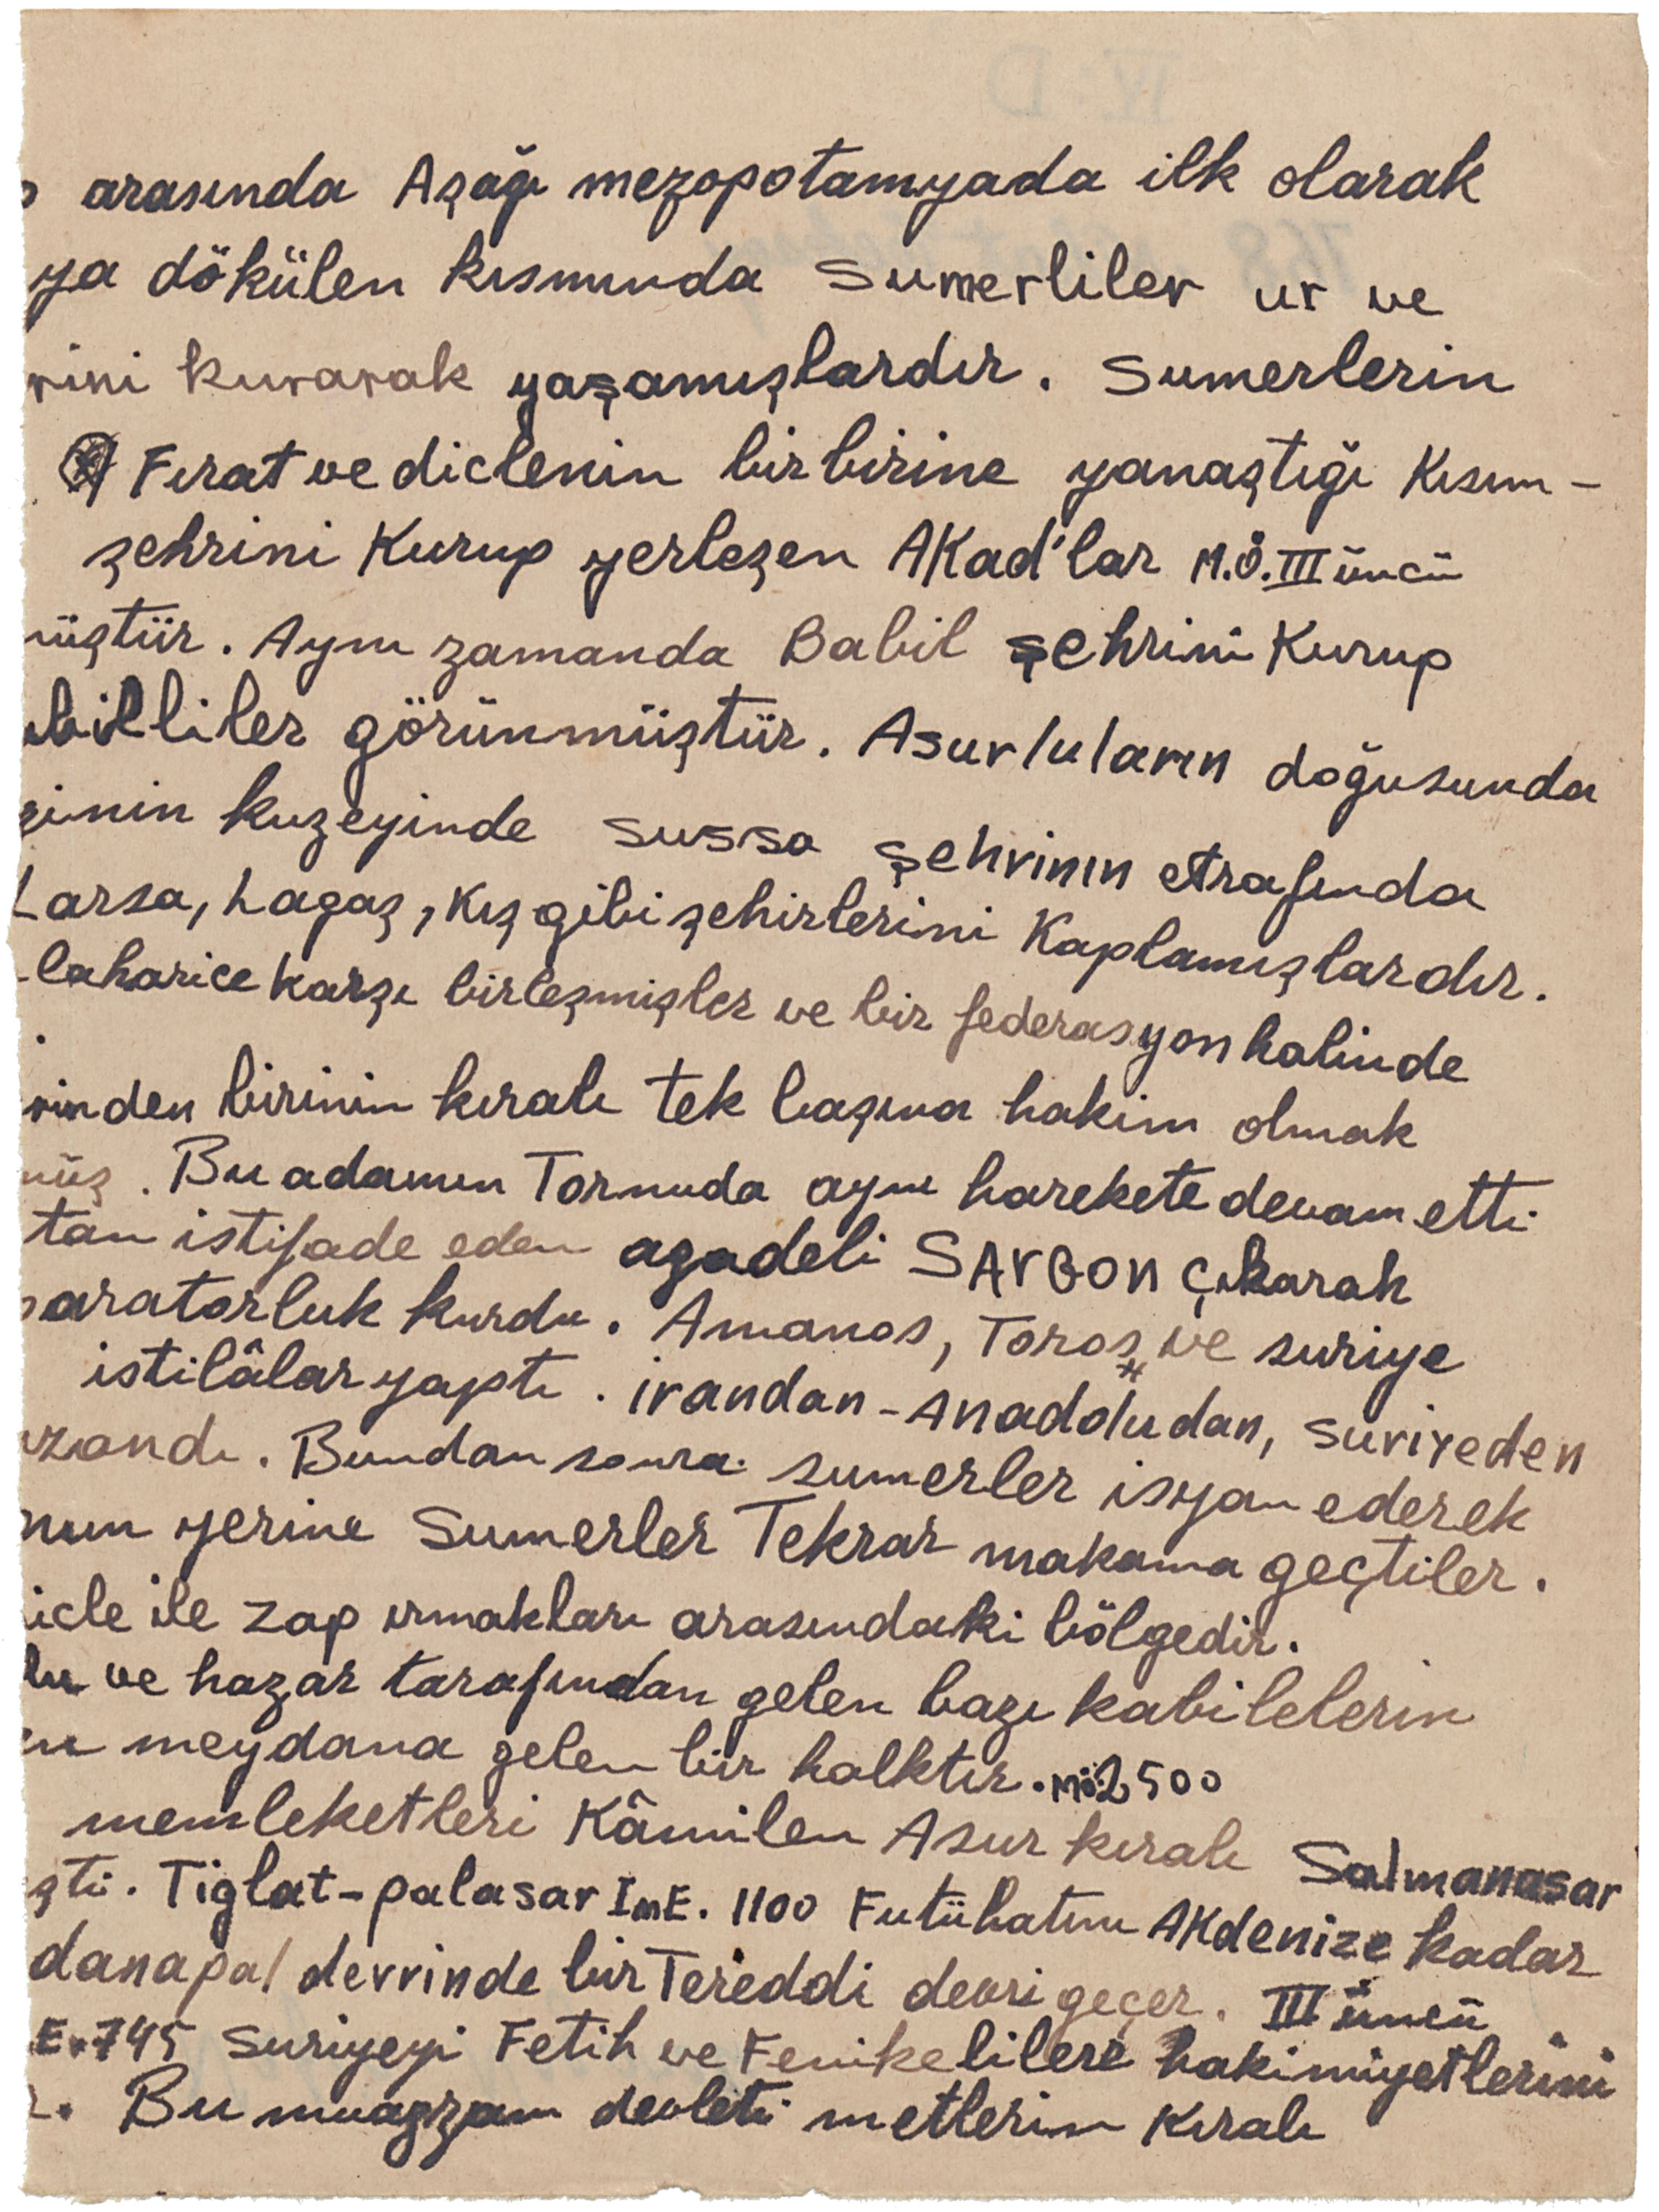 arasında Aşağı mezopotamyada ilk olarak
ya dökülen kısmında Sumerliler ur ve
rini kurarak yaşamışlardır. Sumerlerin
Fırat ve diclenin birbirine yanaştığı Kısım-
şehrini Kurup yerleşen AKad'lar M.Ö. III üncü
müştür. Aynı zamanda Babil şehrini Kurup
abilliler görünmüştür. Asurluların doğusunda
zinin kuzeyinde sussa şehrinin etrafında
Larsa, Lagaş, Kış gibi şehirlerini Kaplamışlardır.
laharice karşı birleşmişler ve bir federasyon halinde
rinden birinin kıralı tek başına hakim olmak
müş. Bu adamın Tornuda aynı harekete devam etti
tan istifade eden agadeli SArGON çıkarak
paratorluk kurdu. Amanos, Toros ve suriye
istilâlar yaptı. irandan-Anadoludan, suriyeden
azandı. Bundan sonra sumerler isyan ederek
nun yerine Sumerler Tekrar makama geçtiler.
icle ile Zap ırmakları arasındaki bölgedir.
lu ve hazar tarafından gelen bazı kabilelerin
meydana gelen bir halktır. MÖ: 2500
memleketleri Kâmilen Asur kıralı Salmanasar
ştı. Tiglat-palasar İmE. 1100 Futühatını AKdenize kadar
danapal devrinde bir Tereddi devri geçer. III üncü
E. 745 Suriyeyi Fetih ve Fenikelilere hakimiyetlerini
r. Bu muazzam devleti metlerin Kıralı